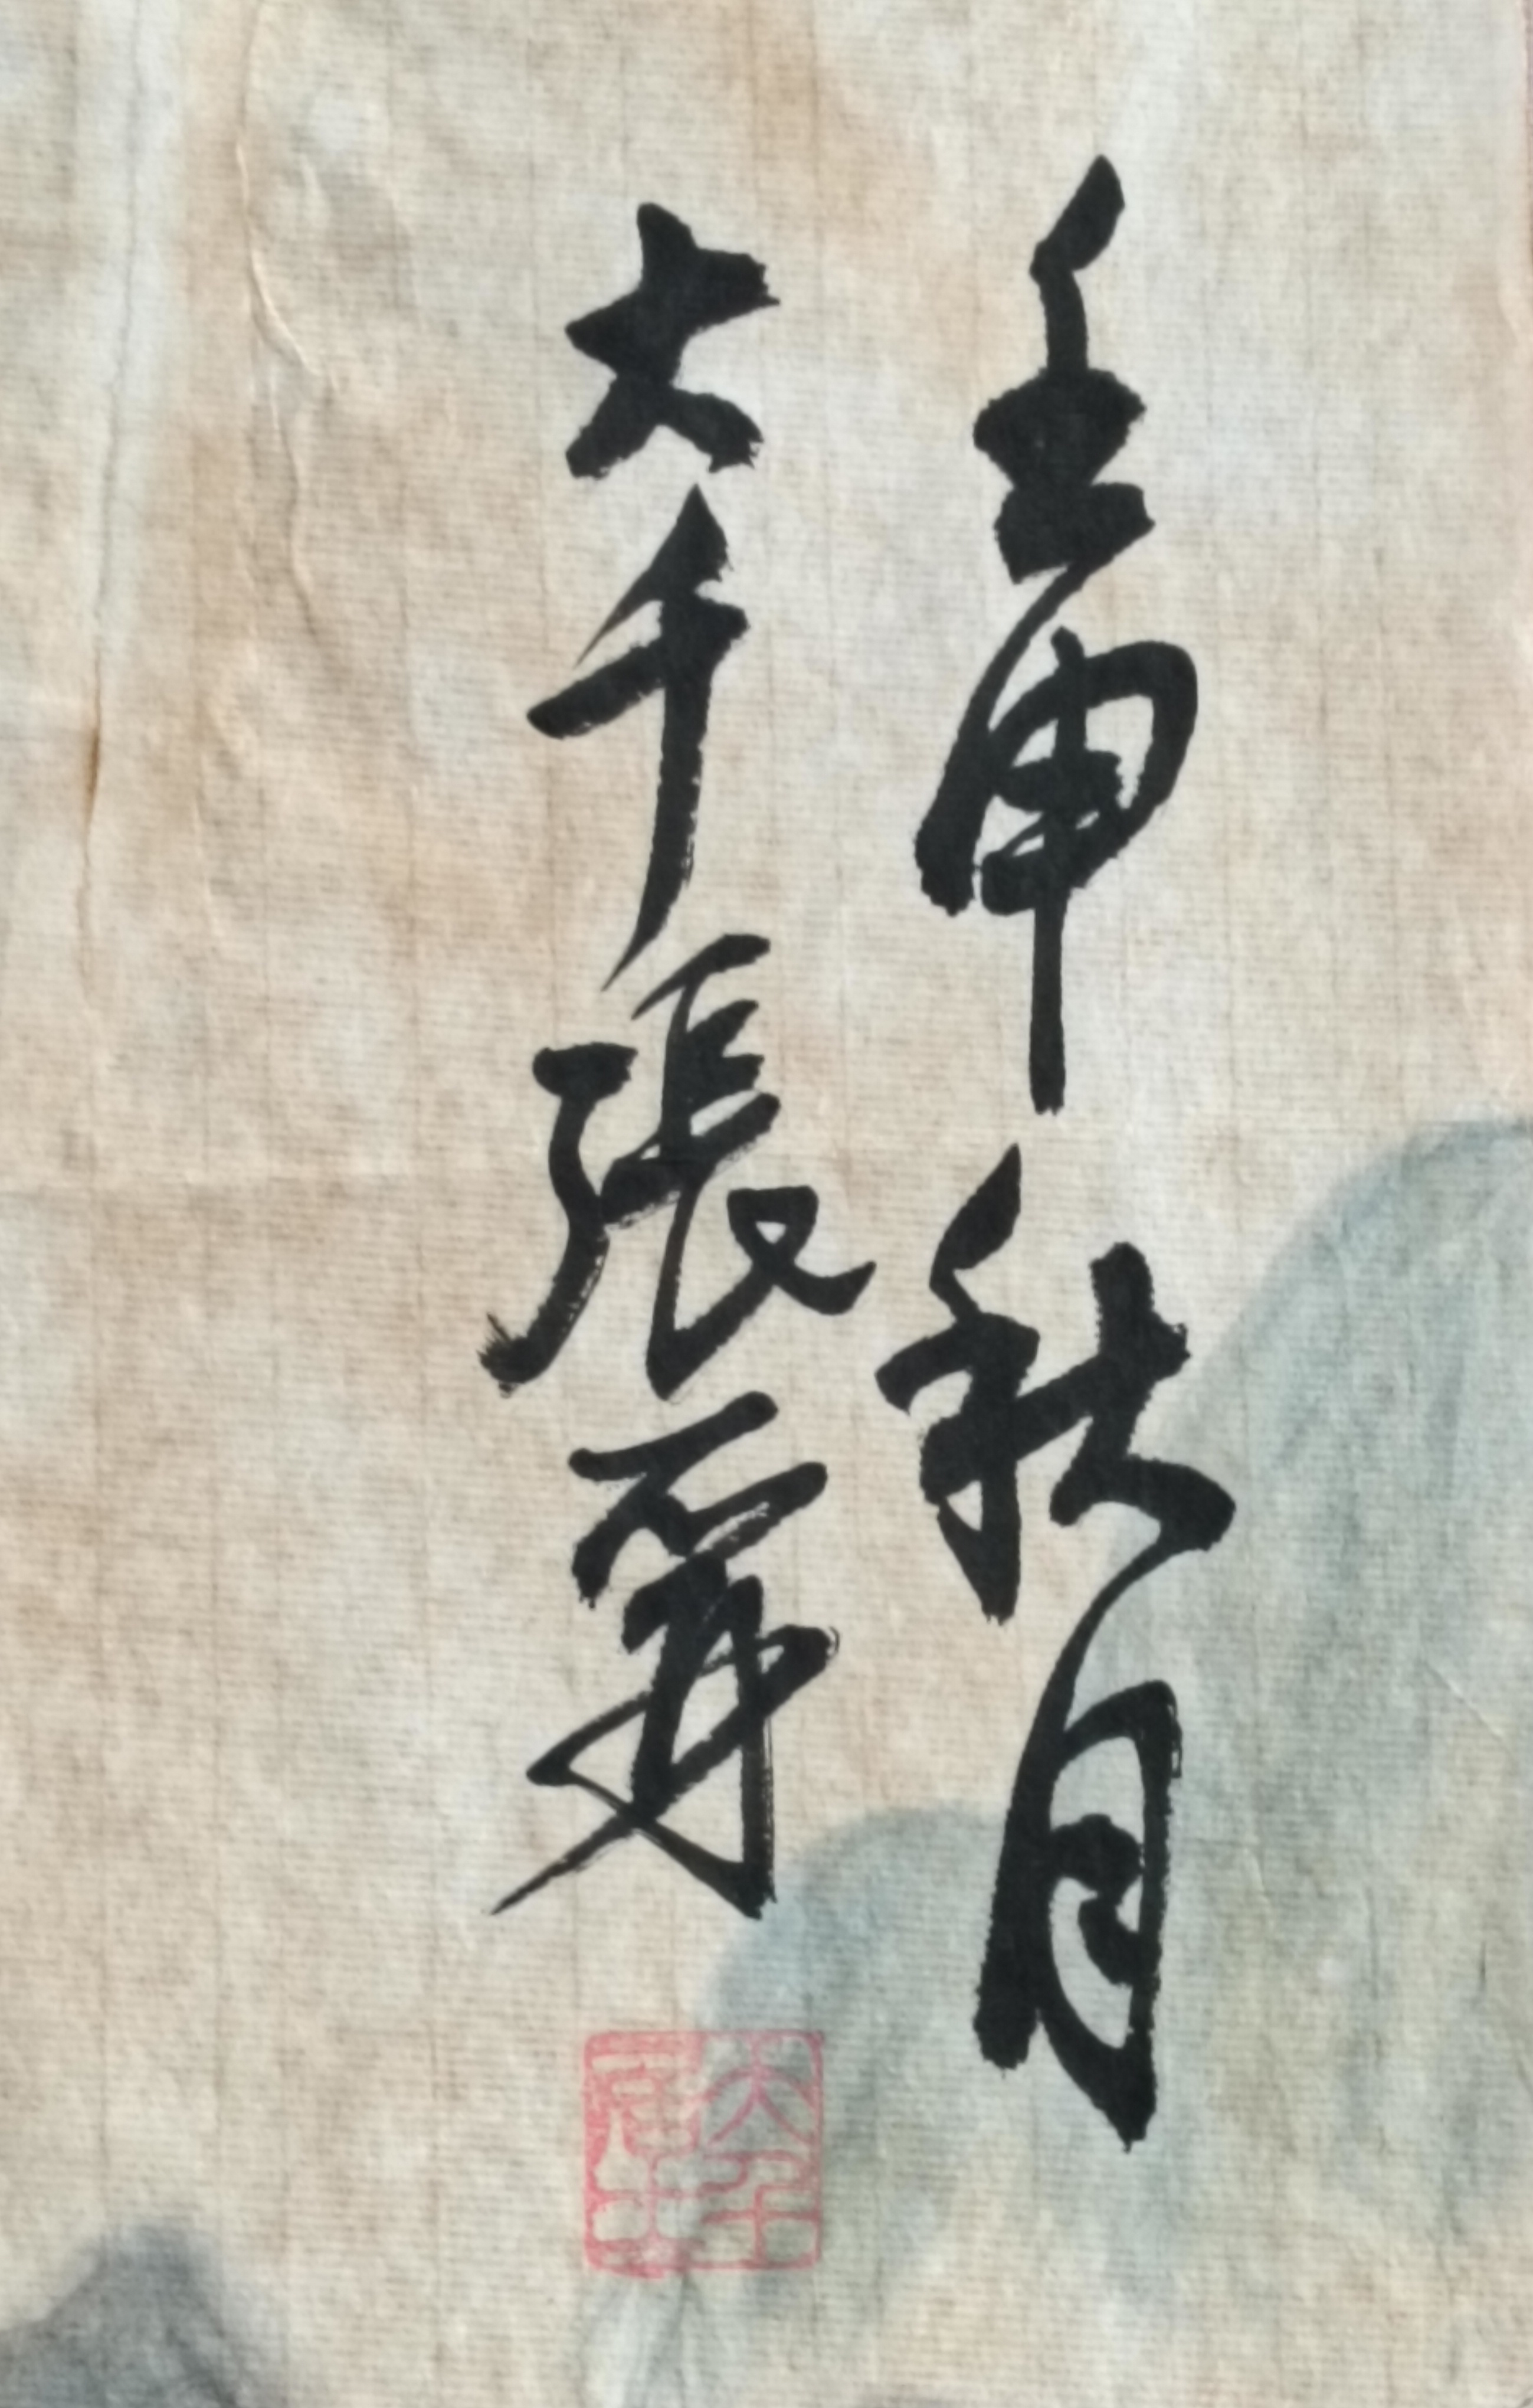 壬申秋月
大千張爰
大千居士